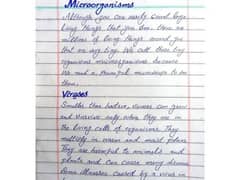 Microorganisms
Although, you can easily count large
living things that you see. There are
millions of living things around you
that are very tiny. We call these tiny
organisms microorganisms because
we need a powerful microscope to see
them.
Viruses
Smaller than bacteria, viruses can grow
and survive only when they are in
the living cells of organisms. They
multiply in warm and moist places.
They are harmful to animals and
plants and can cause many diseases.
Some illnesses caused by a virus in